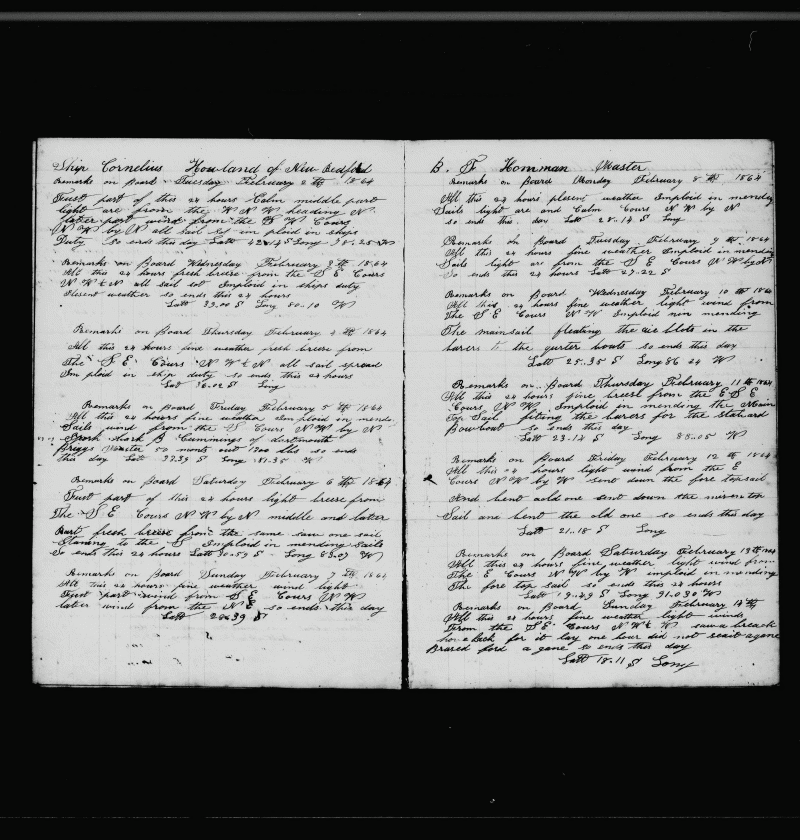 Ship Cornelius Howland of New Bedford
Remarks on Board Tuesday February 2 th 1864
Fust part of this 24 hours Calm middle part
light are from the W N W heading N
latter part wind from the S W Cours
N W by N all sail set im ploid in ships
Duty so ends this day Latt S Long 78.25 W
Remarks on Board Wednesday February 3 th 1864
All this 24 hours fresh breeze from the S E Cours
N W & N all sail set Imploid in ships duty
Plesent weather so ends this 24 hours
Latt 33.00 S Long 80.10 W
Remarks on Board Thursday February 4 th 1864
All this 24 hours fine weather fresh breeze from
The S E Cours N W & N all sail spread
Im ploid in ship duty so ends this 24 hours
Latt 02 S Long
Remarks on Board Friday February 5 th 1864
All this 24 hours fine weather Em ploid in mend
Sails wind from the S Cours N W by N
Spoak Bark B Cummings of dartmouth
Briggs Master 50 months out 1300 bbs so ends
this day Latt 32.39 S Long 81.35 W
Remarks on Board Saturday February 6 th 1864
Fust part of this 24 hours light breeze from
The S E Cours N W by N middle and latter
Part fresh breeze from the same saw one sail
Staning to the S Imploid in mending sails
So ends this 24 hours Latt 30.59 S Long 83.07 W
Remarks on Board Sunday February 7 th 1864
All this 24 hours fine weather wind light
Fust part wind from S E Cours N W
later wind from the N E so ends this day
Latt 28.39 S
B. F Homman Master
Remarks on Board Monday February 8 th 1864
All this 24 hours plesent weather Imploid in mending
Sails light are and Calm Cours N W by N
so ends this day Latt 28.14 S Long
Remarks on Board Tuesday February 9 th 1864
All this 24 hours fine weather Imploid in mending
Sails light ars from the S E Cours N W by N
So ends this 24 hours Latt 27.22 S
Remarks on Board Wednesday February 10 th 1864
All this 24 hours fine weather light wind from
The S E Cours N W Imploid non mending
The mainsail fleating the in the
barers to the qurter boats so ends this day
Latt 25.35 S Long 86 24 W
Remarks on Board Thursday February 11 th 1864
All this 24 hours fine breeze from the E S E
Cours N W Imploid in mending the Main
Top Sail fiting the barers for the stabard
Bowboat so ends this day
Latt 23.14 S Long 88.05 W
Remarks on Board Friday February 12 th 1864
All this 24 hours light wind from the E
Cours N W by W sent down the fore topsail
And bent aold one sent down the mizen top
Sail and bent the old one so ends this day
Latt 21.18 S Long
Remarks on Board Saturday February 13 th 1864
All this 24 hours fine weather light wind from
The E Cours N W by W imploid in mending
The fore top sail so ends this 24 hours
Latt 19.49 S Long 91.030 W
Remarks on Board Sunday February 14 th
All this 24 hours fine weather light winds
From the S E Cours N W & W saw a breach
hove back for it lay one hour did not seait agane
Brared ford a gane so ends this day
Latt 18.11 S Long